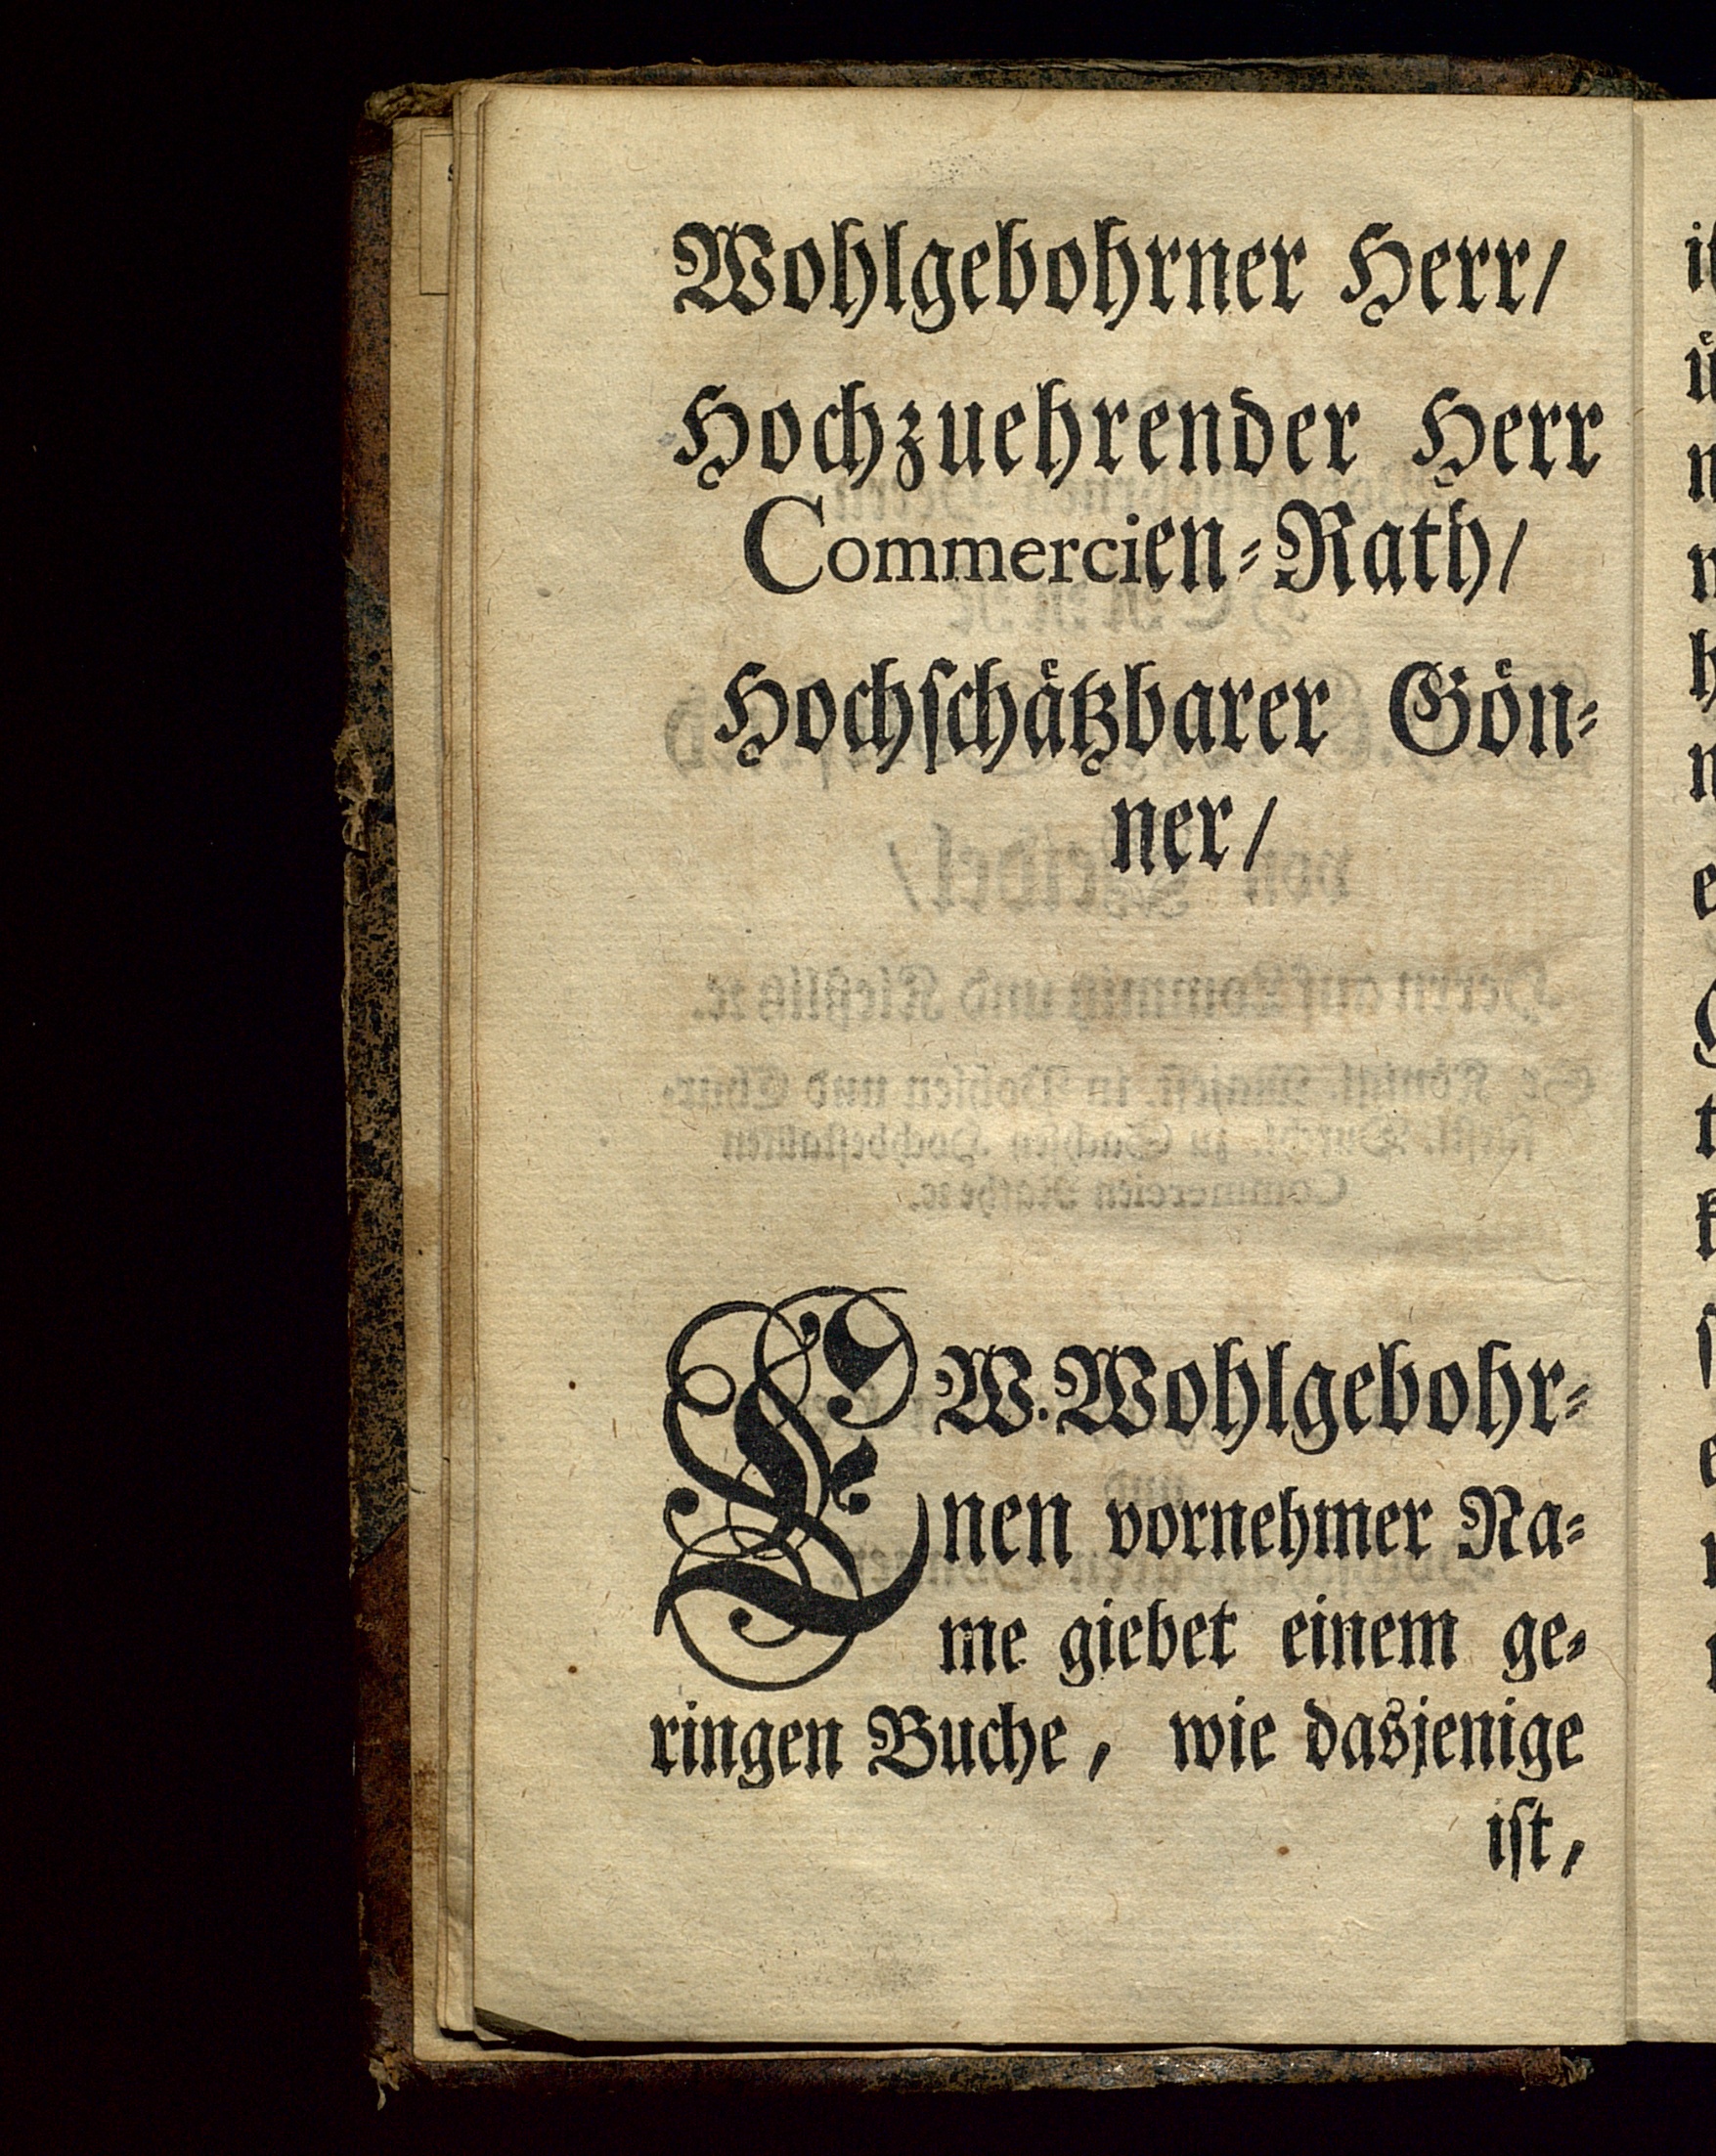 Wohlgebohrner Herr/
Hochzuehrender Herr
Commercien-Rath/
Hochſchaͤtzbarer Goͤn-
ner/
EW. Wohlgebohr-
nen vornehmer Na-
me giebet einem ge-
ringen Buche, wie dasjenige
iſt,